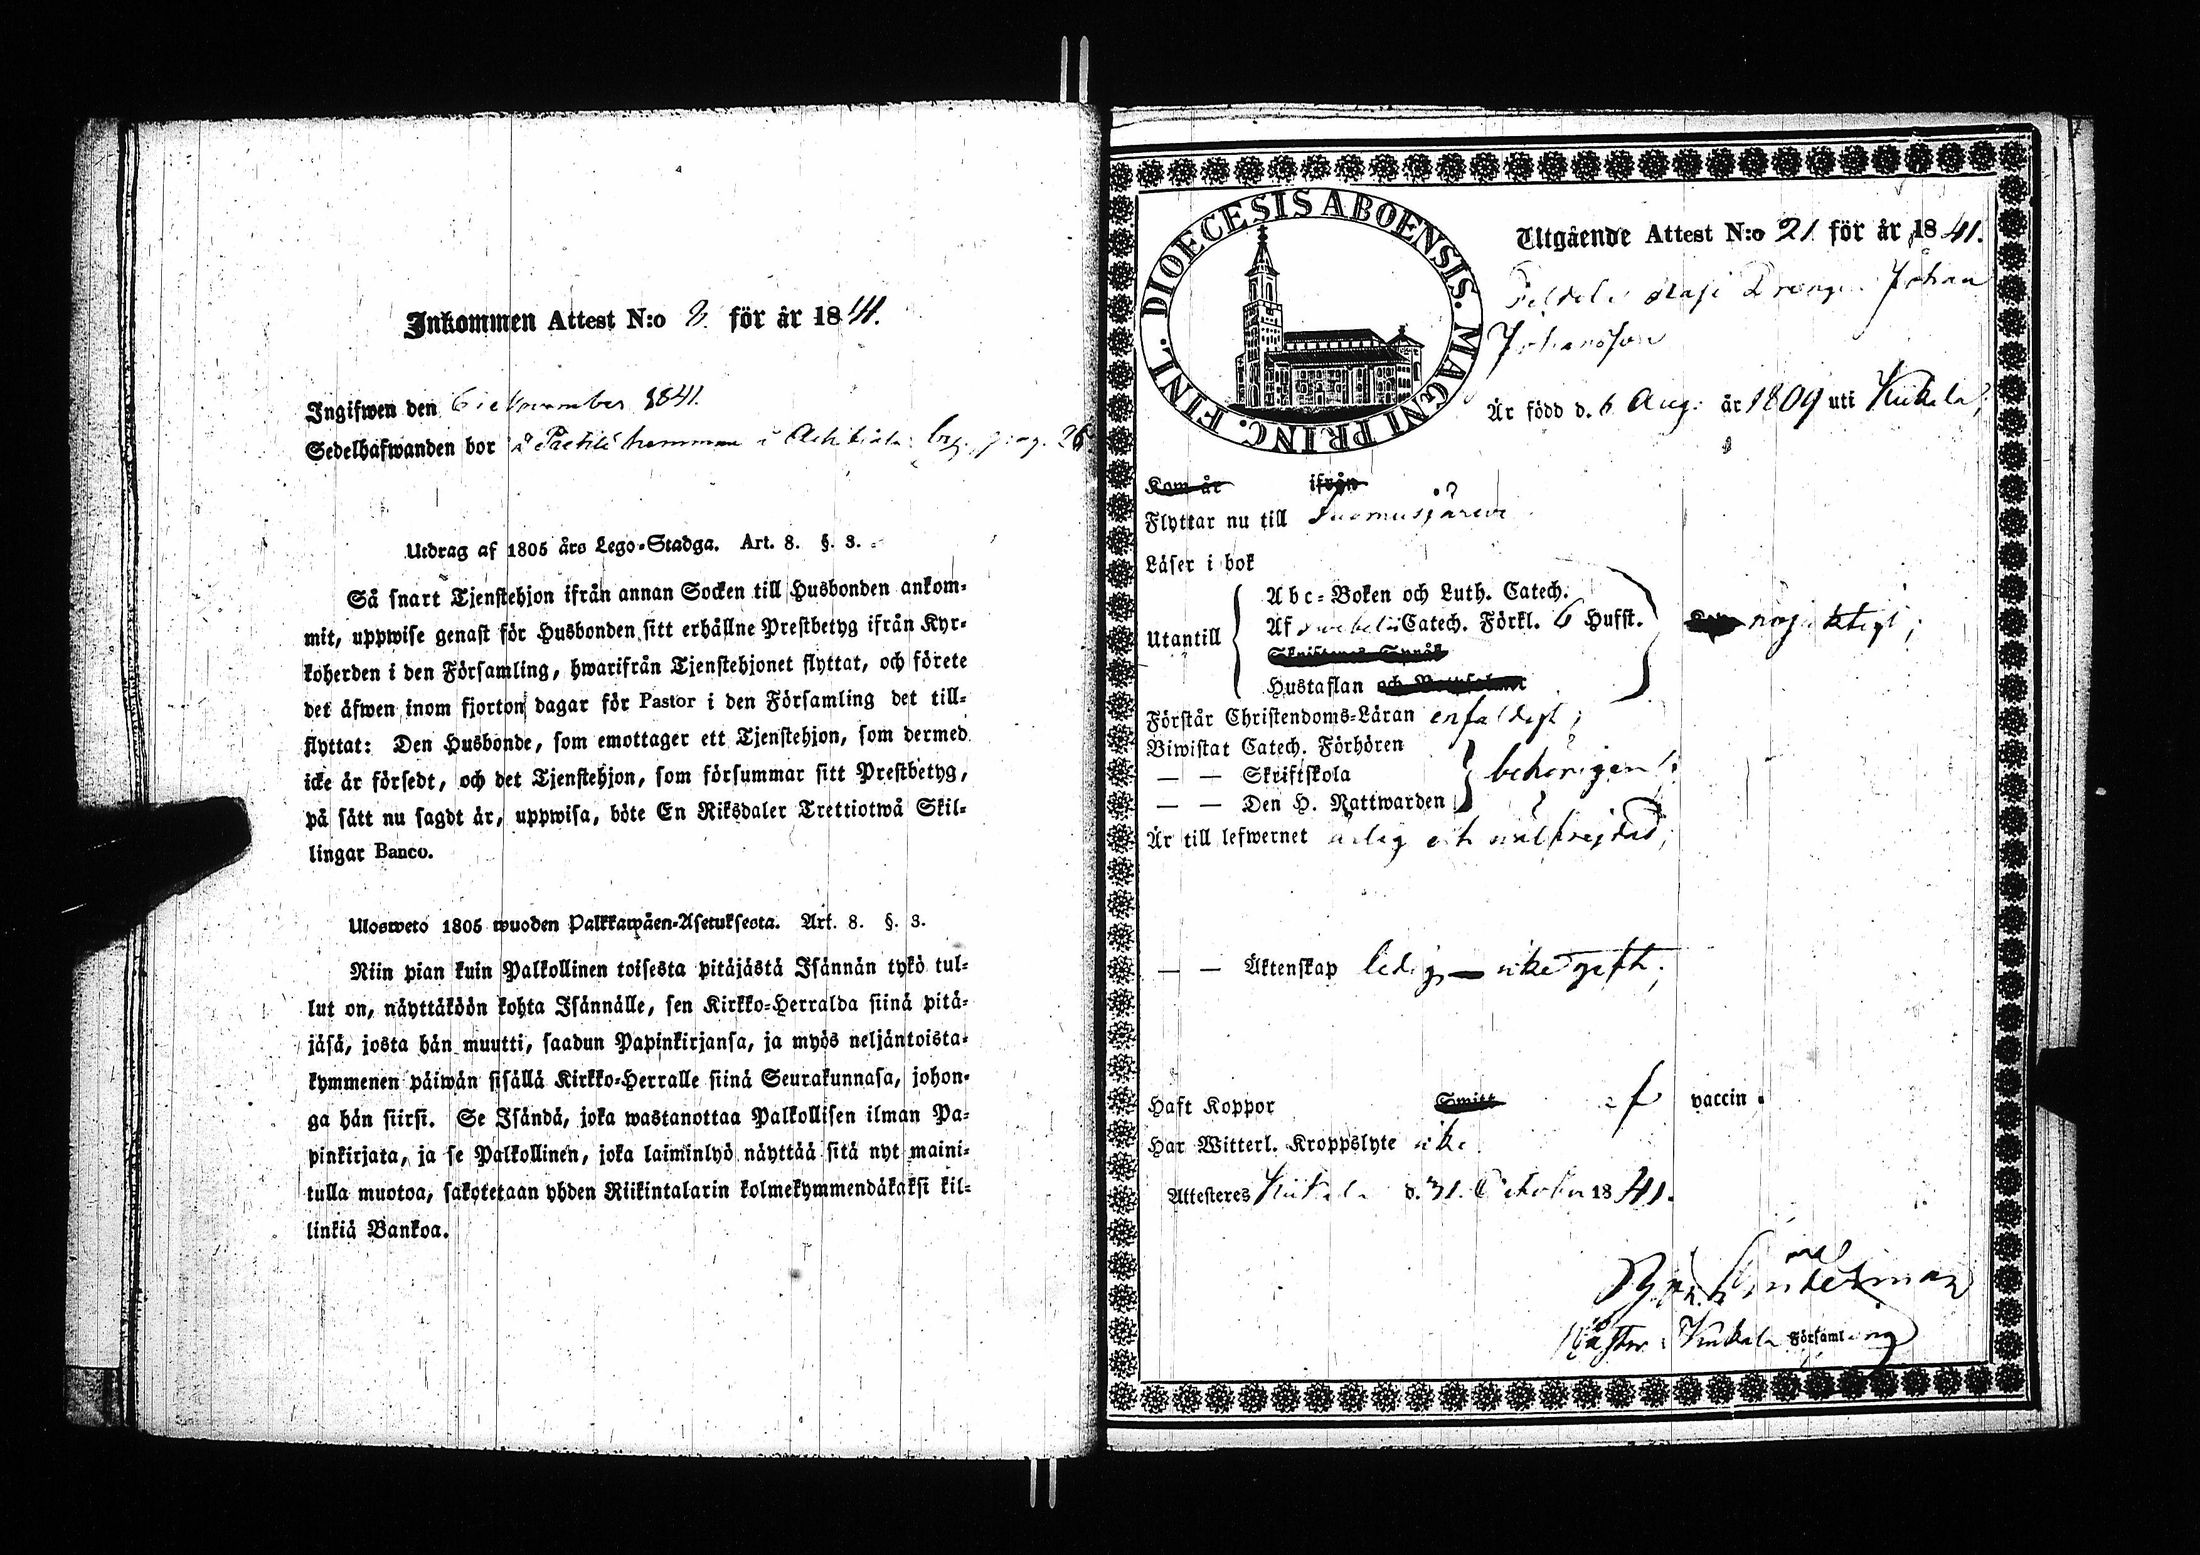 Inkommen Attest N:o 8. för år 1841.
Ingifwen den 6 November 1841.
Sedelhafwanden bor å hemman i by, pag. 26
Utdrag af 1805 års Lego-Stadga. Art. 8. §. 3.
Så snart Tjenstehjon ifrån annan Socken till Husbonden ankom-
mit, uppwise genast för Husbonden sitt erhållne Prestbetyg ifrån Kyr-
koherden i den Församling, hwarifrån Tjenstehjonet flyttat, och förete
det äfwen inom fjorton dagar för Pastor i den Församling det till-
flyttat: Den Husbonde, som emottager ett Tjenstehjon, som dermed
icke är försedt, och det Tjenstehjon, som försummar sitt Prestbetyg,
på sätt nu sagdt är, uppwisa, böte En Riksdaler Trettiotwå Skil-
lingar Banco.
Ulosweto 1805 wuoden Palkkawäen-Asetuksesta. Art. 8. §. 3.
Niin pian kuin Palkollinen toisesta pitäjästä Isännän tykö tul-
lut on, näyttäköön kohta Isännälle, sen Kirkko-Herralda siinä pitä-
jäsä, josta hän muutti, saadun Papinkirjansa, ja myös neljäntoista-
kymmenen päiwän sisällä Kirkko-Herralle siinä Seurakunnasa, johon-
ga hän siirsi. Se Isändä, joka wastanottaa Palkollisen ilman Pa-
pinkirjata, ja se Palkollinen, joka laiminlyö näyttää sitä nyt maini-
tulla muotoa, sakotetaan yhden Riikintalarin kolmekymmendäkaksi kil-
linkiä Bankoa.
DIOECESIS ABOENSIS. MAGNI PRINC. FINL.
Utgående Attest N:o 21 för år 1841.
Drengen Johan
Johansson
Är född d. 6 Aug. år 1809 uti Kiikala,
Kom år ifrån
Flyttar nu till Suomusjärvi
Läser i bok
Utantill
Abc-Boken och Luth. Catech.
Af Catech. Förkl. 6 Hufst.
nöjaktigt;
Skriftenes Språk
Hustaflan och Botpsalmer
Förstår Christendoms-Läran enfaldigt;
Biwistat Catech. Förhören
— — Skriftskola
behörigen;
— — Den H. Nattwarden
Är till lefwernet ärlig och välfrejdad;
— — Äktenskap ledig — icke gift;
Haft Koppor Smitt af vaccin.
Har Witterl. Kroppslyte icke.
Attesteres Kiikala d. 31. October 1841.
i Kiikala Församling